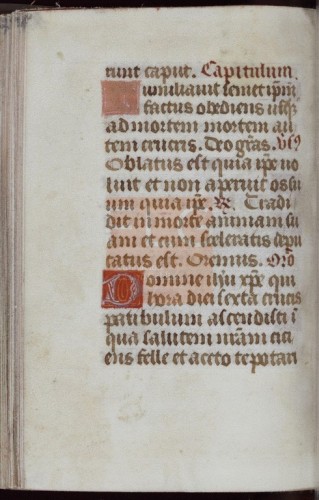 runt caput. Capitulum
Humiliavit semet ipm̄
factus obediens usq3
ad mortem mortem au
tem crucis. Deo grãs. v̄s
Oblatus est quia ip̄e vo
luit et non aperuit os su
um quia ip̄e. R̄. Tradi
dit in morte animam su
am et cum sceleratis depu
tatus est. Oremus. Or̄o
Domine ih̄u xp̄e qui
hora diei sexta crucis
patibulum ascendisti ĩ
qua salutem nr̄am citi
ens felle et aceto te potari